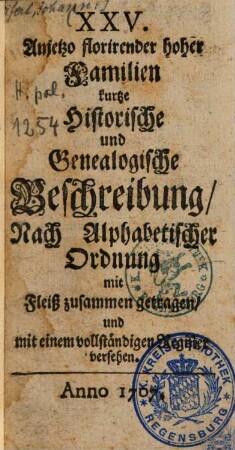 XXV.
Anjetzo florirender hoher
Familien
kurtze
Historische
und
Genealogische
Beschreibung/
Nach Alphabetischer
Ordnung
mit
Fleiß zusammen getragen/
und
mit einem vollständigen Register
versehen.
Anno 1707.
H. pol.
1254
K. KREISBIBLIOTHEK
REGENSBURG